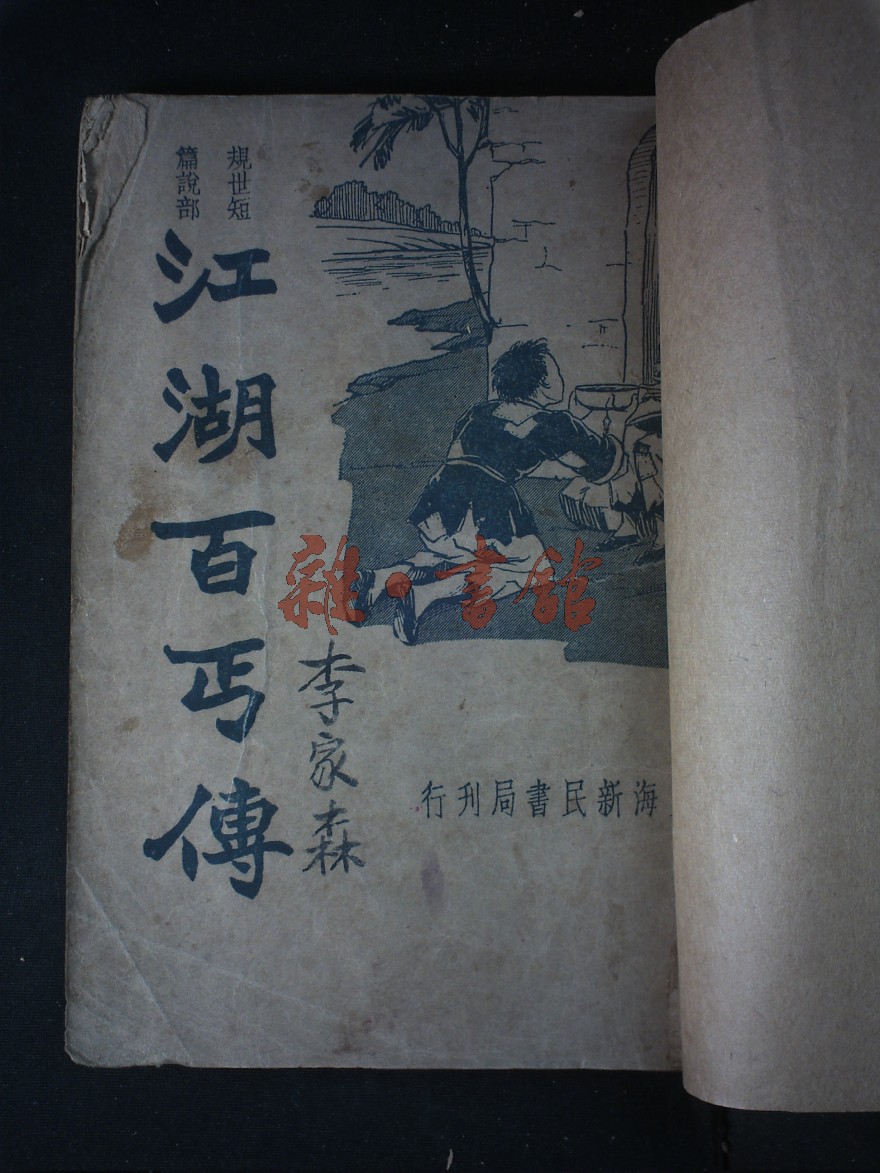 規世短
篇說部
江湖百丐傳
李家森
海新民書局刊行
雜·書館